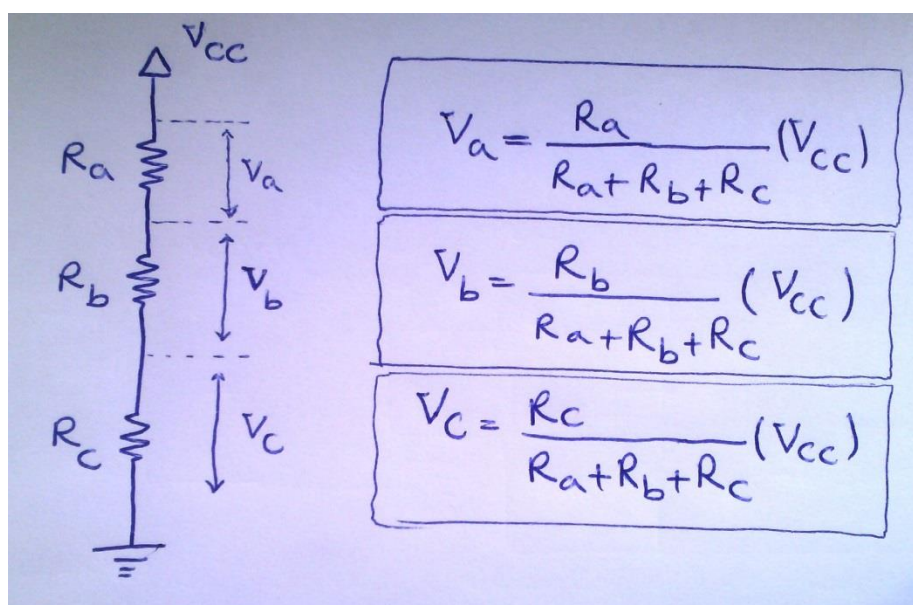 V_CC
R_a
V_a
R_b
V_b
R_c
V_c
V_a = R_a / (R_a + R_b + R_c) (V_CC)
V_b = R_b / (R_a + R_b + R_c) (V_CC)
V_c = R_c / (R_a + R_b + R_c) (V_CC)